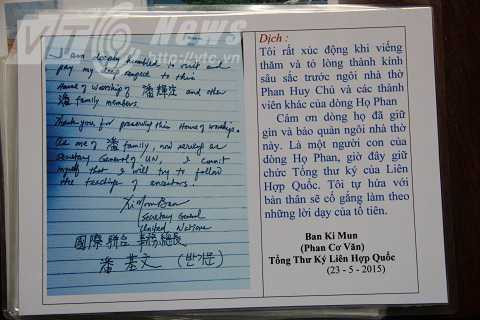 VTC News
http://vtc.vn
I am deeply humbled to visit and
pay my deep respect to this
House of worship of 潘輝注 and other
潘 family members.
Thank you for preserving this House of worship.
As one of 潘 family, now serving as
Secretary General of UN, I commit
myself that I will try to follow
the teachings of ancestors.
Ki Moon Ban
Secretary General
United Nations
國際聯合 事務總長
潘基文 (반기문)
Dịch :
Tôi rất xúc động khi viếng
thăm và tỏ lòng thành kính
sâu sắc trước ngôi nhà thờ
Phan Huy Chú và các thành
viên khác của dòng Họ Phan
Cám ơn dòng họ đã giữ
gìn và bảo quản ngôi nhà thờ
này. Là một người con của
dòng Họ Phan, giờ đây giữ
chức Tổng thư ký của Liên
Hợp Quốc. Tôi tự hứa với
bản thân sẽ cố gắng làm theo
những lời dạy của tổ tiên.
Ban Ki Mun
(Phan Cơ Văn)
Tổng Thư Ký Liên Hợp Quốc
(23 - 5 - 2015)